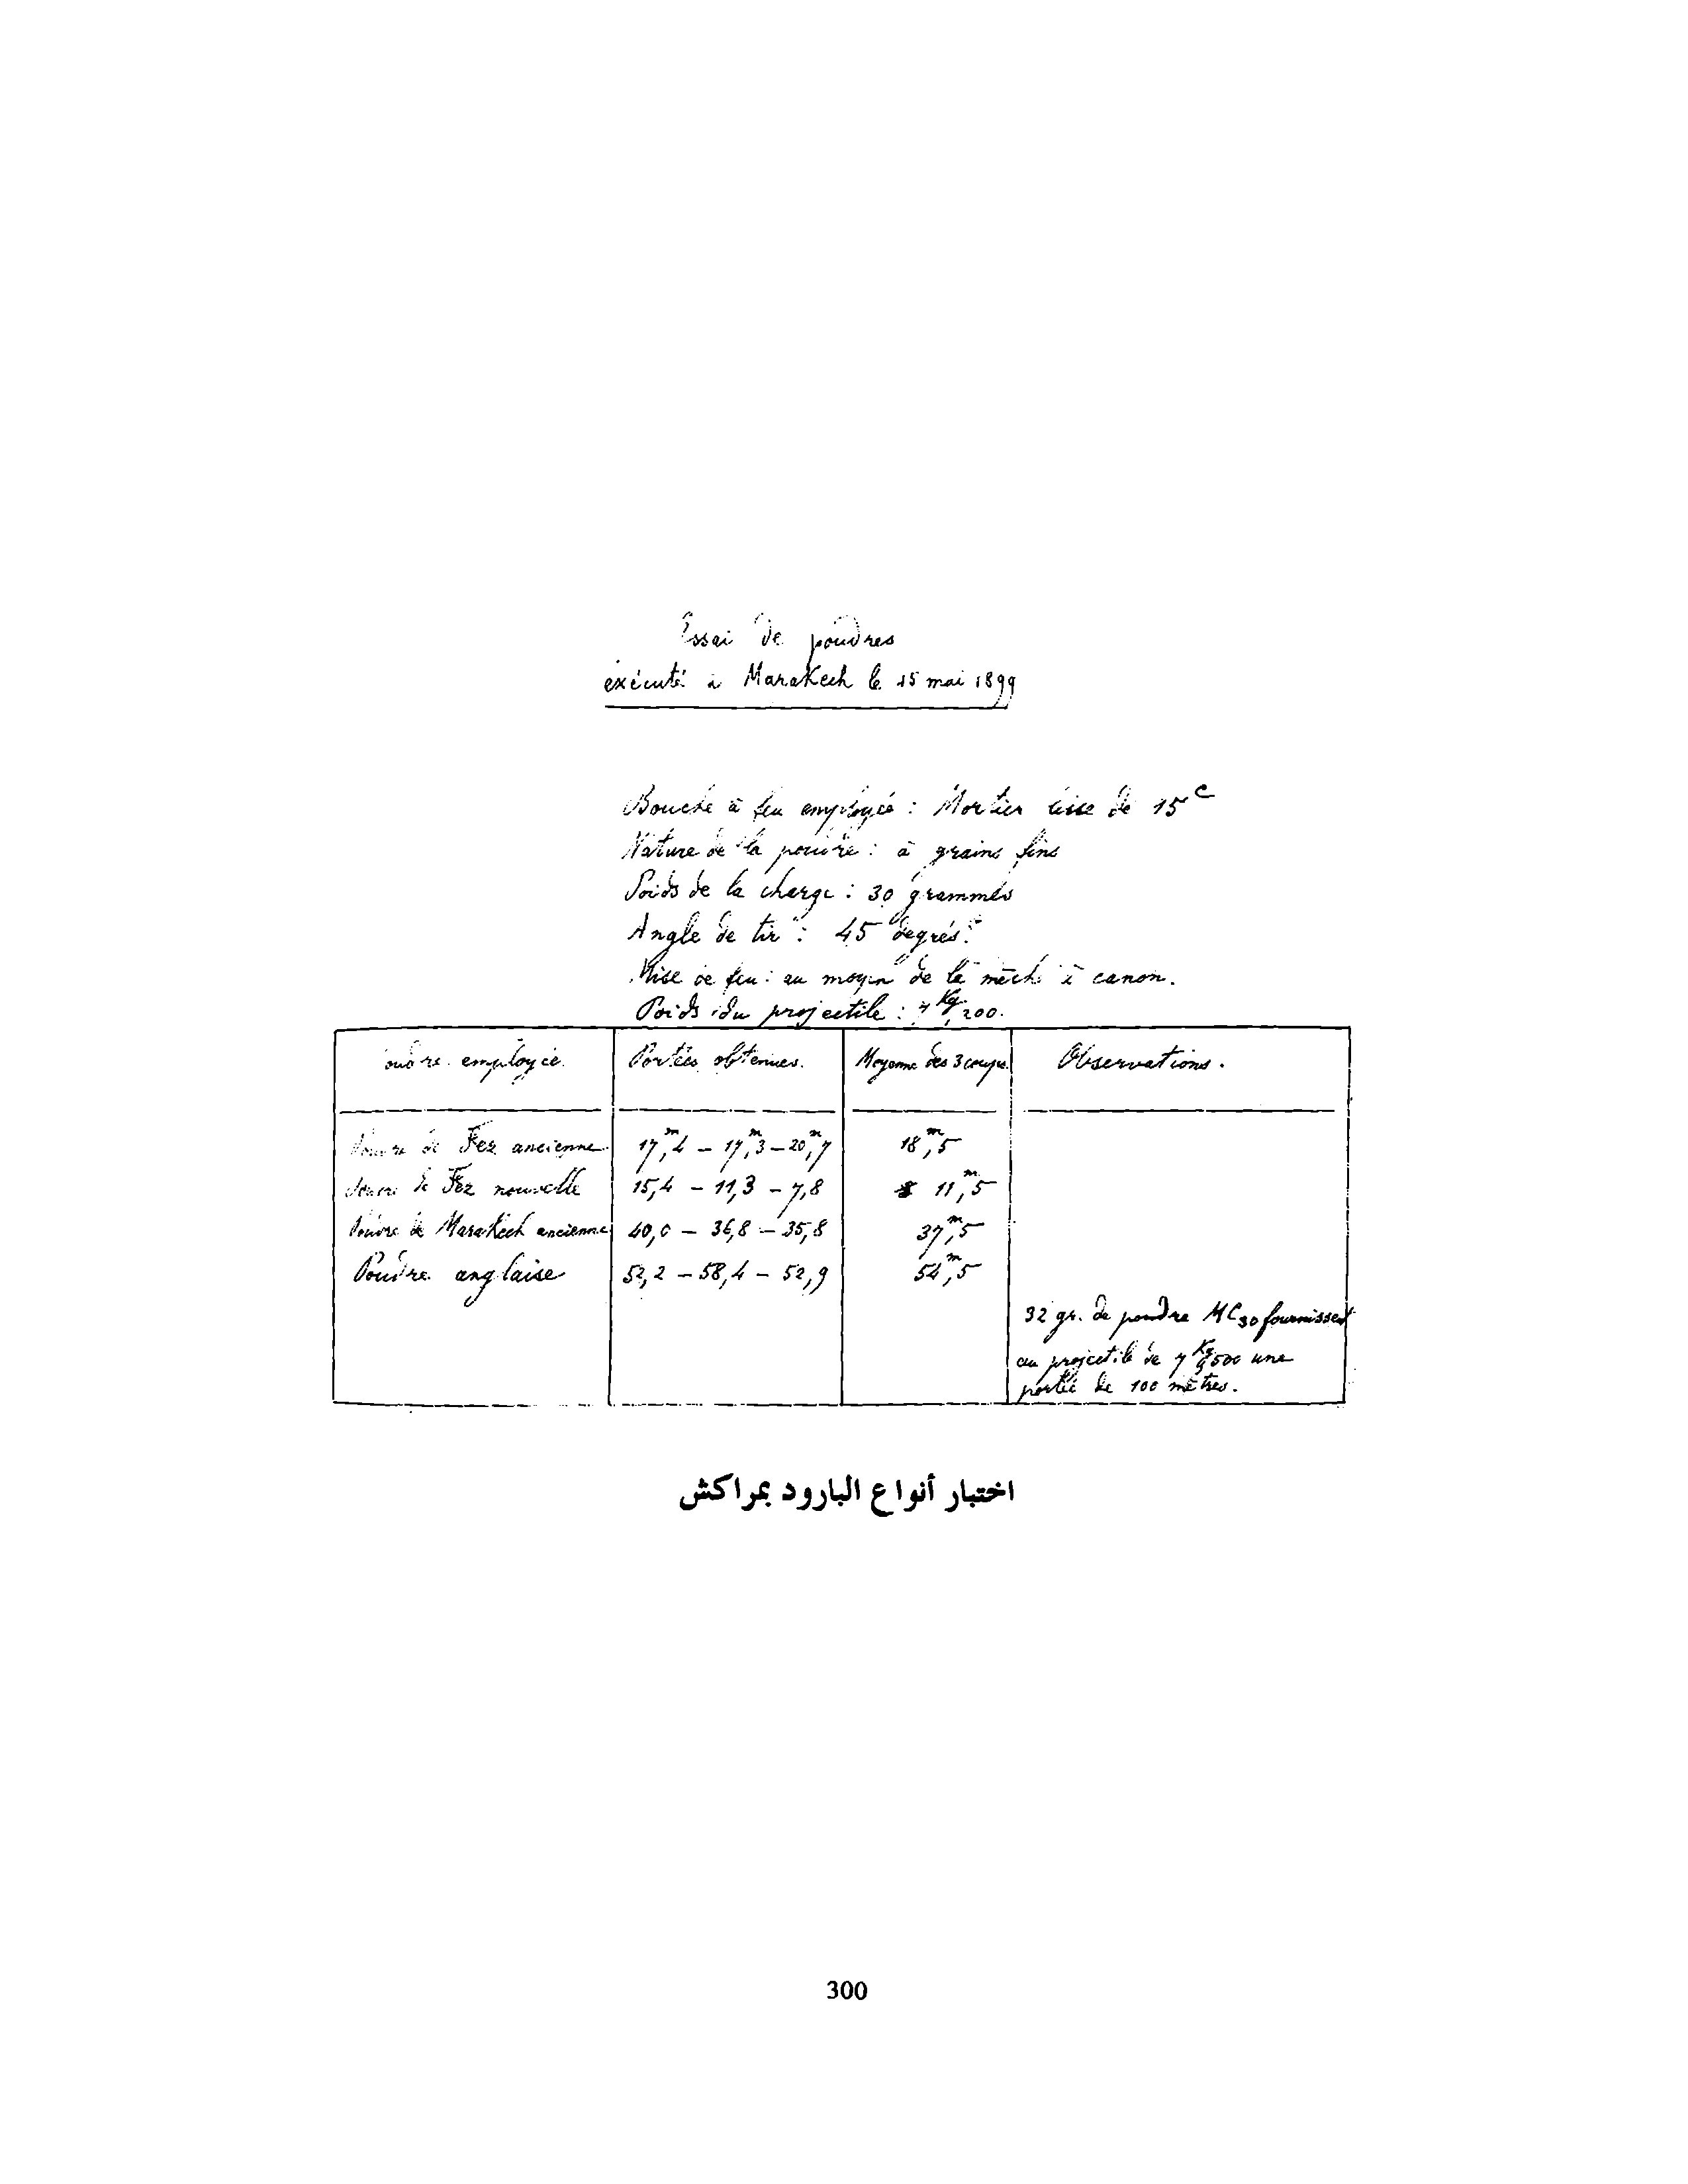 Essai de poudres
exécuté à Marakech le 15 mai 1899
Bouche à feu employée : Mortier lisse de 15c
Nature de la poudre : à grains fins
Poids de la charge : 30 grammes
Angle de tir : 45 degrés.
Mise de feu : au moyen de la mèche à canon.
Poids du projectile : 7Kg,200.
Poudre employée. Portées obtenues. Moyenne des 3 coups. Observations.
Poudre de Fez ancienne 17m,4 – 17m,3 – 20m,7 18m,5
Poudre de Fez nouvelle 15,4 – 11,3 – 7,8 11m,5
Poudre de Marakech ancienne 40,0 – 36,8 – 35,8 37m,5
Poudre anglaise 52,2 – 58,4 – 52,9 54m,5
32 gr. de poudre MC30 fournissent
au projectile de 7Kg500 une
portée de 100 mètres.
اختبار أنواع البارود بمراكش
300